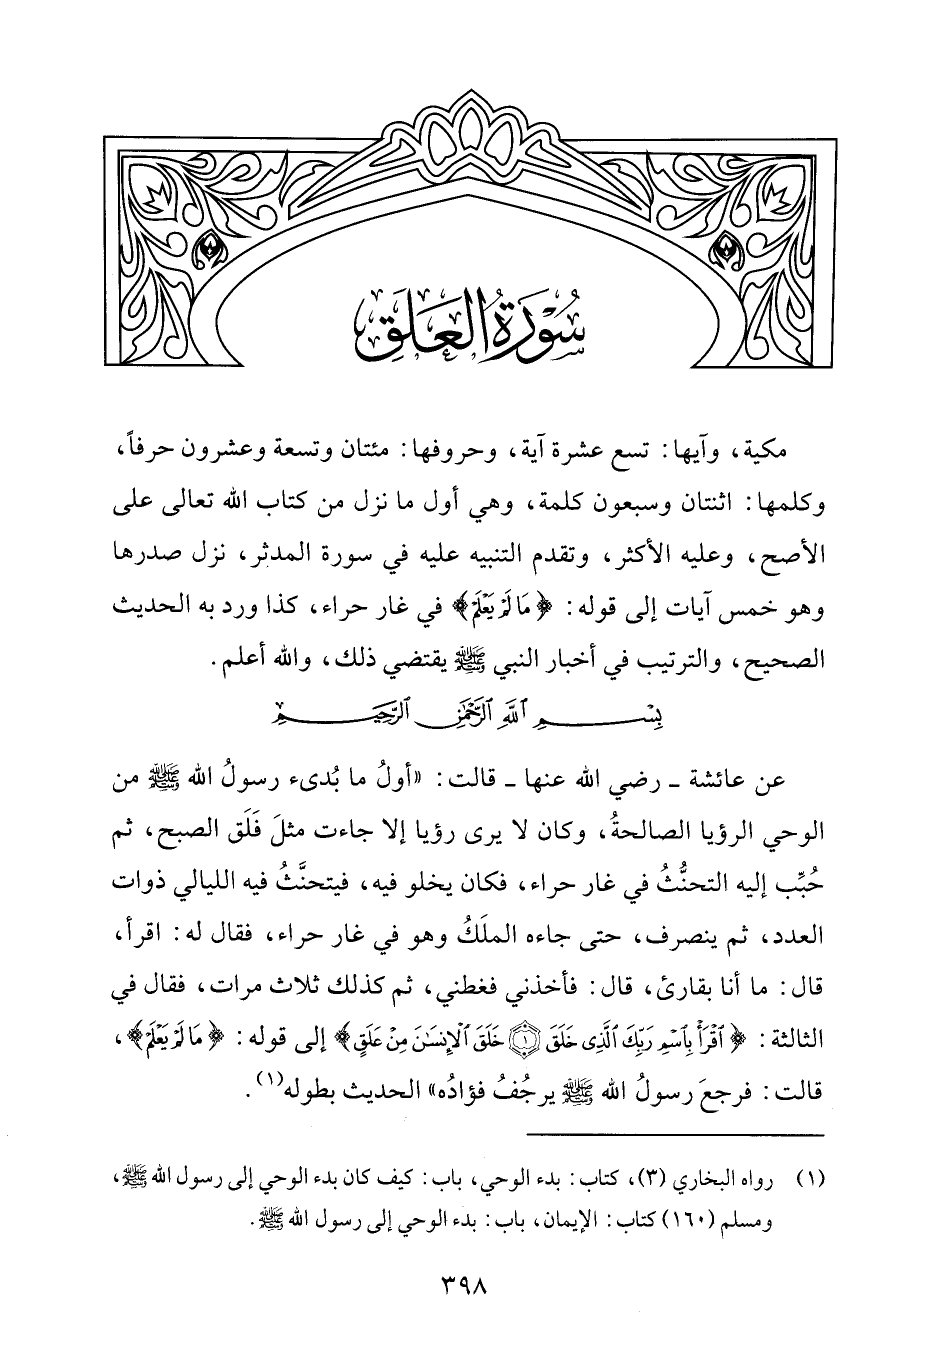 سُورَةُ العَلَقِ
مكية، وآيها: تسع عشرة آية، وحروفها: مئتان وتسعة وعشرون حرفاً،
وكلمها: اثنتان وسبعون كلمة، وهي أول ما نزل من كتاب الله تعالى على
الأصح، وعليه الأكثر، وتقدم التنبيه عليه في سورة المدثر، نزل صدرها
وهو خمس آيات إلى قوله: ﴿مَا لَمْ يَعْلَمْ﴾ في غار حراء، كذا ورد به الحديث
الصحيح، والترتيب في أخبار النبي ﷺ يقتضي ذلك، والله أعلم.
بِسْمِ ٱللَّهِ ٱلرَّحْمَٰنِ ٱلرَّحِيمِ
عن عائشة ـ رضي الله عنها ـ قالت: «أولُ ما بُدىء رسولُ الله ﷺ من
الوحي الرؤيا الصالحةُ، وكان لا يرى رؤيا إلا جاءت مثلَ فَلَق الصبح، ثم
حُبِّب إليه التحنُّثُ في غار حراء، فكان يخلو فيه، فيتحنَّثُ فيه الليالي ذوات
العدد، ثم ينصرف، حتى جاءه الملَكُ وهو في غار حراء، فقال له: اقرأ،
قال: ما أنا بقارئ، قال: فأخذني فغطني، ثم كذلك ثلاث مرات، فقال في
الثالثة: ﴿ٱقْرَأْ بِٱسْمِ رَبِّكَ ٱلَّذِى خَلَقَ ۝١ خَلَقَ ٱلْإِنسَٰنَ مِنْ عَلَقٍ﴾ إلى قوله: ﴿مَا لَمْ يَعْلَمْ﴾،
قالت: فرجعَ رسولُ الله ﷺ يرجُفُ فؤادُه» الحديث بطوله(١).
(١) رواه البخاري (٣)، كتاب: بدء الوحي، باب: كيف كان بدء الوحي إلى رسول الله ﷺ،
ومسلم (١٦٠) كتاب: الإيمان، باب: بدء الوحي إلى رسول الله ﷺ.
٣٩٨